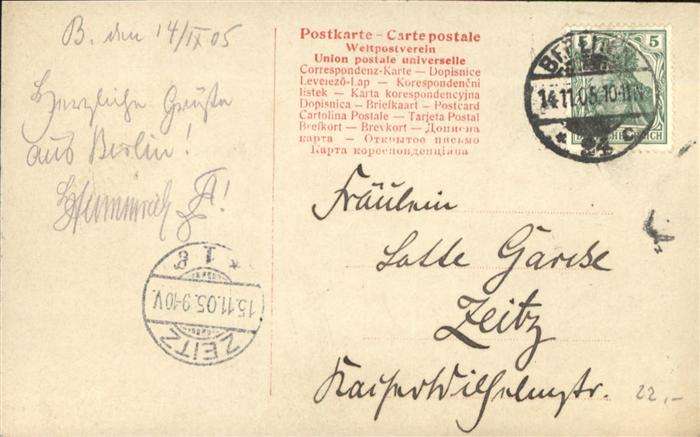 B. den 14/IX 05
Herzliche Grüße
aus Berlin!
Postkarte – Carte postale
Weltpostverein
Union postale universelle
Correspondenz-Karte – Dopisnice
Levelező-Lap – Korespondenční
listek – Karta korespondencyjna
Dopisnica – Briefkaart – Postcard
Cartolina Postale – Tarjeta Postal
Brefkort – Brevkort – Дописна
карта – Открытое письмо
Карта кореспонденціина
BERLIN
14.11.05.10-11N
* 24 c
5
DEUTSCHES REICH
Fräulein
Lotte Garcke
Zeitz
KaiserWilhelmstr.
22,-
ZEITZ
15.11.05.9-10V.
* 1 g